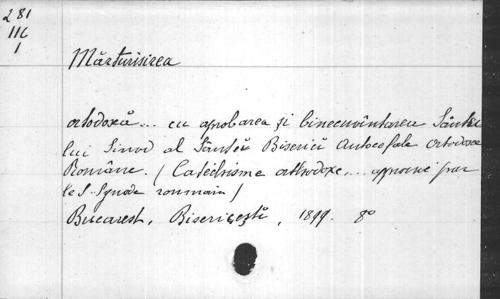 281
116
1
Mărturisirea
ortodoxă... cu aprobarea şi binecuvîntarea Sântu
lui Sinod al Sântei Biserici Autocefale ortodoxe
Române. (Catéchisme orthodoxe... approuvé par
le S. Synode roumain)
Bucarest, Bisericeşti, 1899. 8°